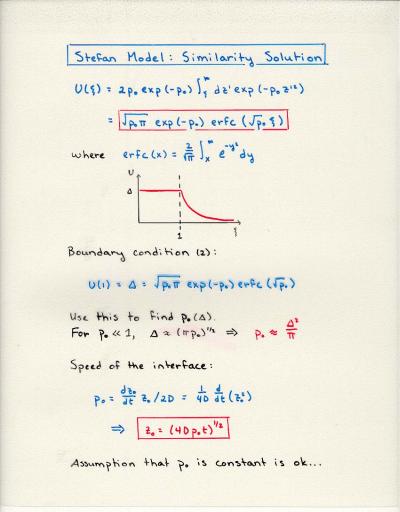 Stefan Model: Similarity Solution
U(ξ) = 2p₀ exp(-p₀) ∫_ξ^∞ dz' exp(-p₀ z'²)
= √(p₀π) exp(-p₀) erfc(√p₀ ξ)
where erfc(x) = 2/√π ∫_x^∞ e^(-y²) dy
U
Δ
ξ
1
Boundary condition (2):
U(1) = Δ = √(p₀π) exp(-p₀) erfc(√p₀)
Use this to find p₀(Δ).
For p₀ ≪ 1, Δ ≈ (πp₀)^(1/2) ⇒ p₀ ≈ Δ²/π
Speed of the interface:
p₀ = dz₀/dt z₀/2D = 1/4D d/dt (z₀²)
⇒ z₀ = (4Dp₀t)^(1/2)
Assumption that p₀ is constant is ok...